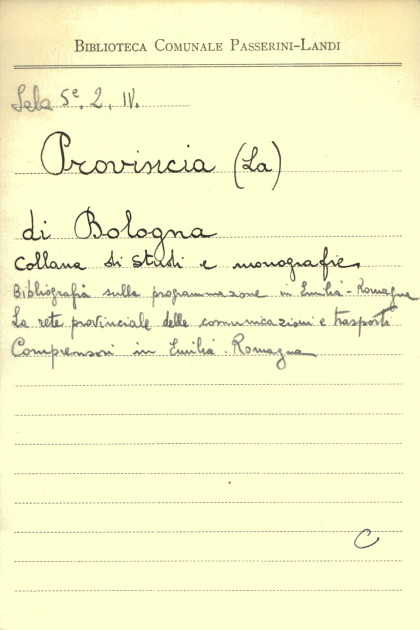 BIBLIOTECA COMUNALE PASSERINI-LANDI
Sala 5e. 2. IV.
Provincia (La)
di Bologna
Collana di studi e monografie.
Bibliografia sulla programmazione in Emilia-Romagna
La rete provinciale delle comunicazioni e trasporti
Comprensori in Emilia-Romagna
C